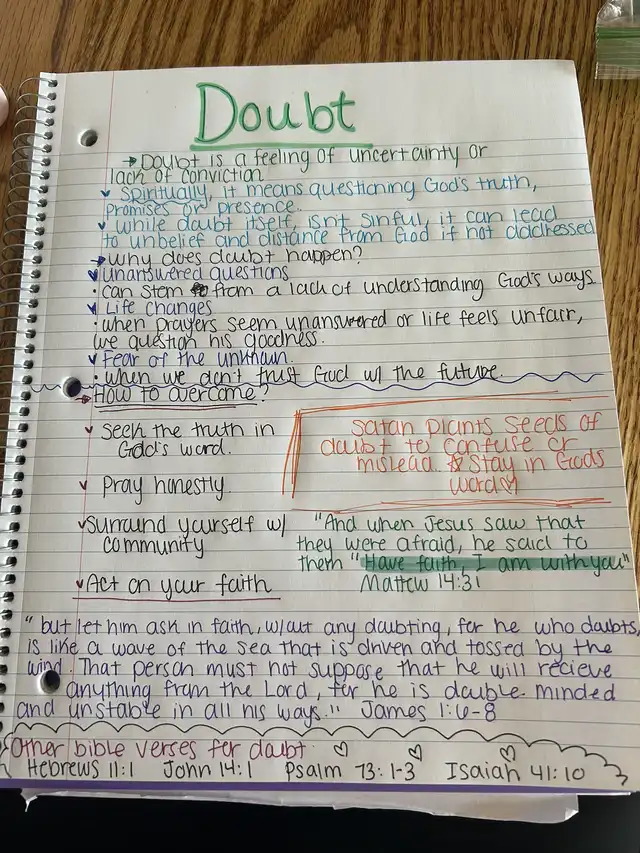 Doubt
→ Doubt is a feeling of uncertainty or
lack of conviction
✓ Spiritually, it means questioning God's truth,
promises or presence.
✓ while doubt itself, isn't sinful, it can lead
to unbelief and distance from God if not addressed
→ why does doubt happen?
✓ unanswered questions
• can stem from a lack of understanding God's ways
✓ Life changes
• when prayers seem unanswered or life feels unfair,
we question his goodness.
✓ Fear of the unknown.
• when we don't trust God w/ the future.
→ How to overcome?
✓ Seek the truth in
God's word.
✓ Pray honestly.
✓ Surround yourself w/
community
✓ Act on your faith
Satan plants seeds of
doubt to confuse or
mislead. ☆ Stay in Gods
word ♡
"And when Jesus saw that
they were afraid, he said to
them "Have faith, I am with you"
Mattew 14:31
" but let him ask in faith, w/out any doubting, for he who doubts,
is like a wave of the sea that is driven and tossed by the
wind. That person must not suppose that he will recieve
anything from the Lord, for he is double minded
and unstable in all his ways." James 1:6-8
Other bible verses for doubt ♡ ♡ ♡
Hebrews 11:1 John 14:1 Psalm 73:1-3 Isaiah 41:10